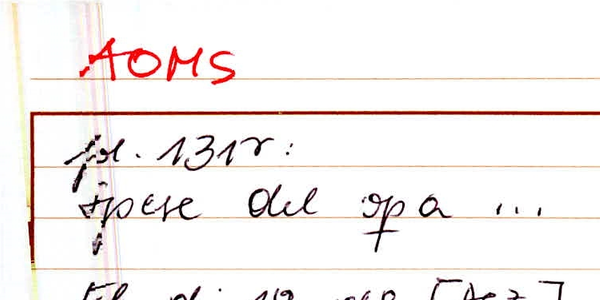 AOMS
fol. 131r:
spese del opa ...